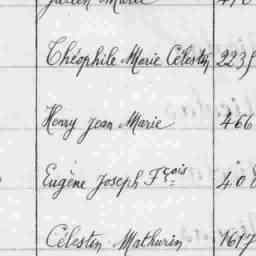 Julien Marie 470
Théophile Marie Célestin 2235
Henry Jean Marie 466
Eugène Joseph Fçois 408
Célestin Mathurin 1617